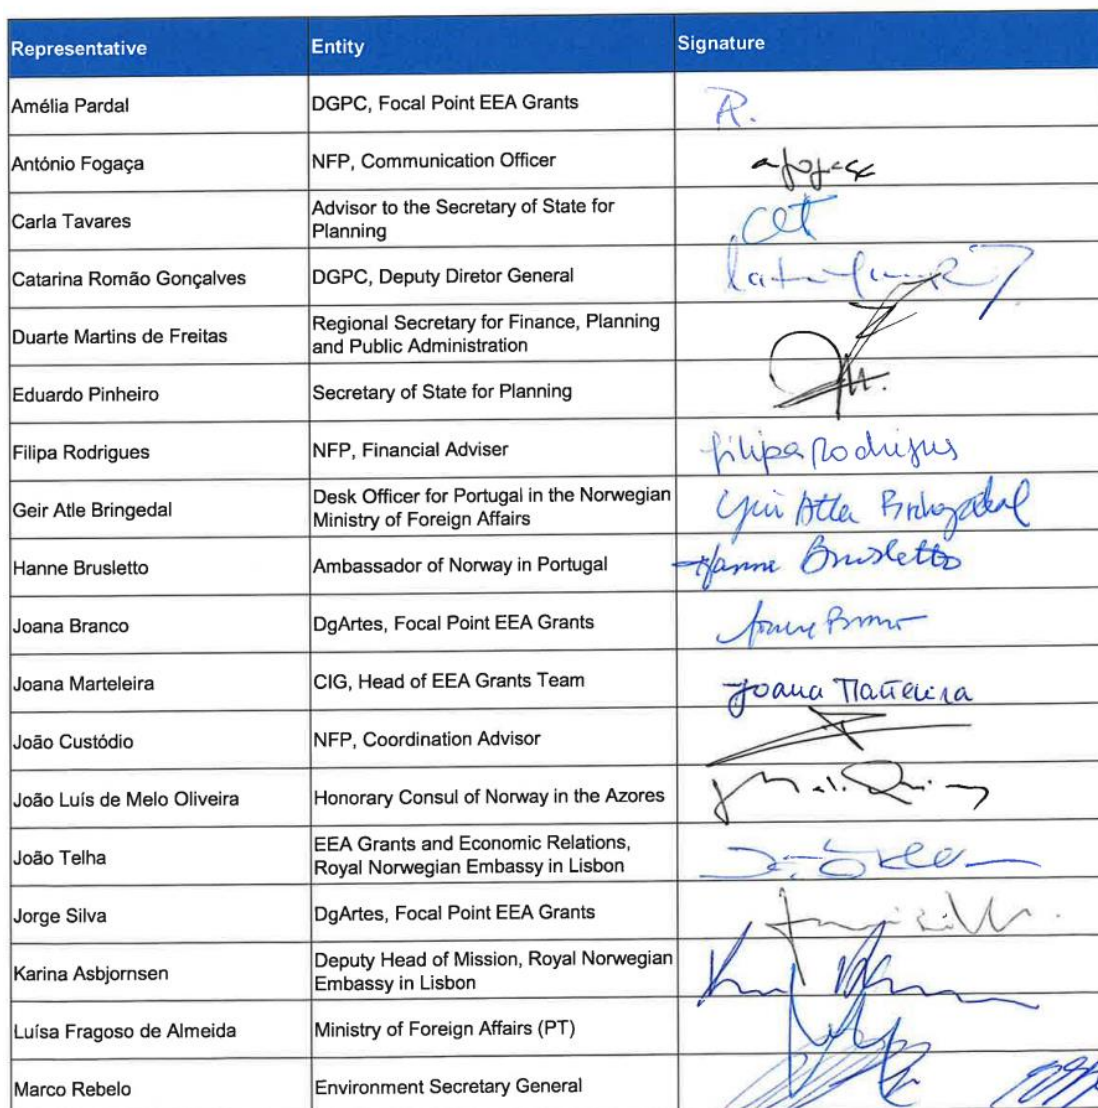 Representative Entity Signature
Amélia Pardal DGPC, Focal Point EEA Grants R.
António Fogaça NFP, Communication Officer
Carla Tavares Advisor to the Secretary of State for
Planning
Catarina Romão Gonçalves DGPC, Deputy Diretor General
Duarte Martins de Freitas Regional Secretary for Finance, Planning
and Public Administration
Eduardo Pinheiro Secretary of State for Planning
Filipa Rodrigues NFP, Financial Adviser Filipa Rodrigues
Geir Atle Bringedal Desk Officer for Portugal in the Norwegian
Ministry of Foreign Affairs Geir Atle Bringedal
Hanne Brusletto Ambassador of Norway in Portugal Hanne Brusletto
Joana Branco DgArtes, Focal Point EEA Grants
Joana Marteleira CIG, Head of EEA Grants Team Joana Marteleira
João Custódio NFP, Coordination Advisor
João Luís de Melo Oliveira Honorary Consul of Norway in the Azores
João Telha EEA Grants and Economic Relations,
Royal Norwegian Embassy in Lisbon
Jorge Silva DgArtes, Focal Point EEA Grants
Karina Asbjornsen Deputy Head of Mission, Royal Norwegian
Embassy in Lisbon
Luísa Fragoso de Almeida Ministry of Foreign Affairs (PT)
Marco Rebelo Environment Secretary General